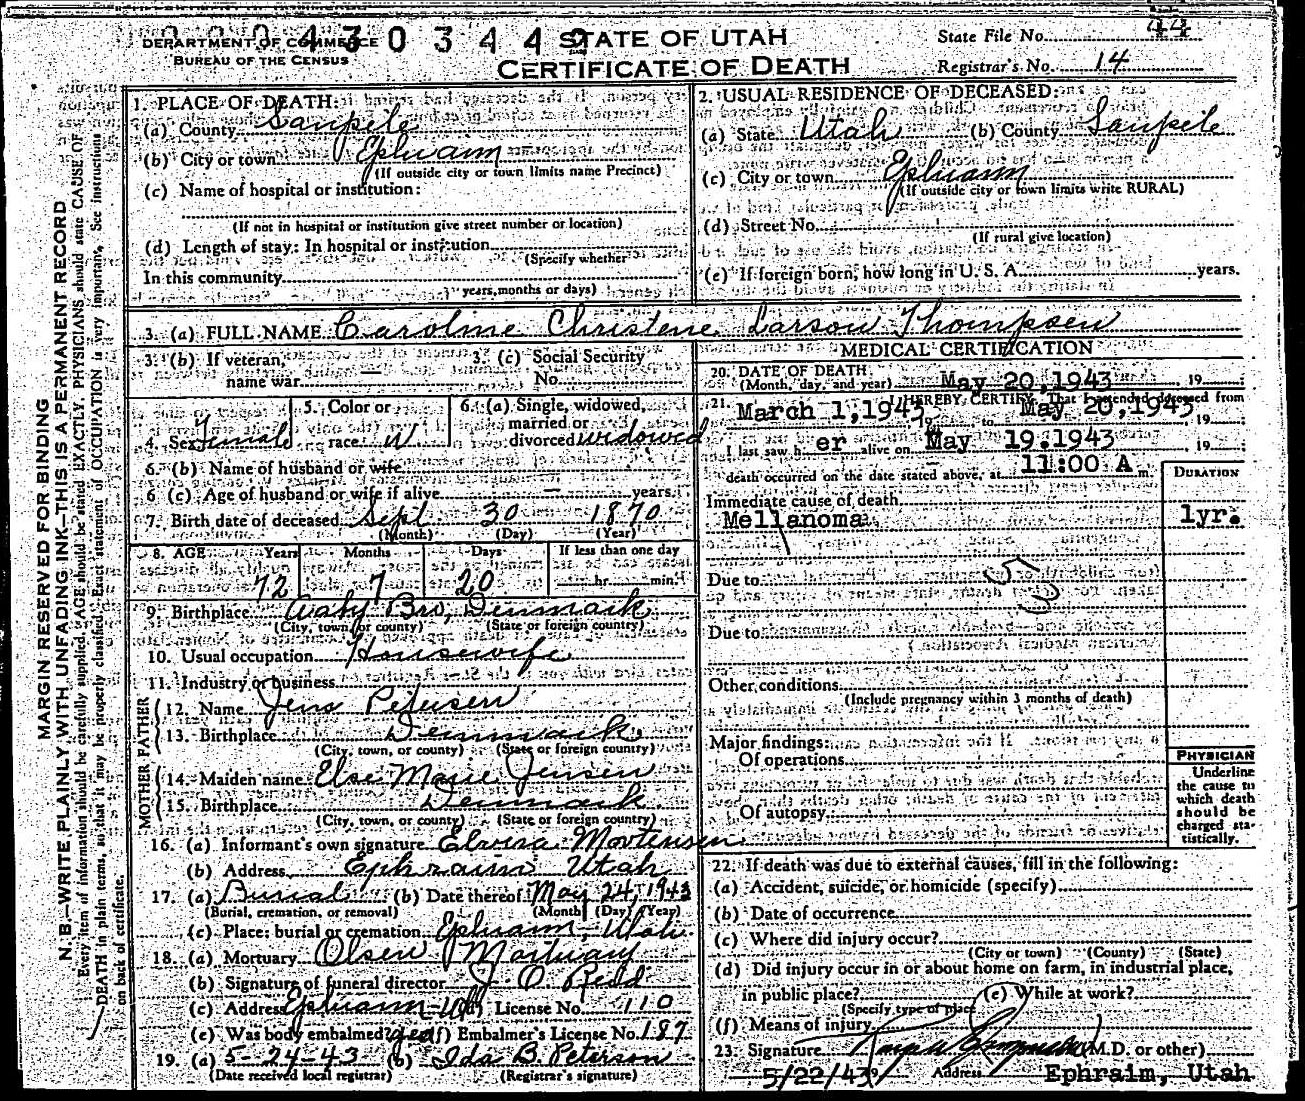 4 3 0 3 4 4 2
DEPARTMENT OF COMMERCE
BUREAU OF THE CENSUS
STATE OF UTAH
CERTIFICATE OF DEATH
State File No. 44
Registrar's No. 14
MARGIN RESERVED FOR BINDING
N. B.—WRITE PLAINLY WITH UNFADING INK—THIS IS A PERMANENT RECORD
Every item of information should be carefully supplied. AGE should be stated EXACTLY. PHYSICIANS should state CAUSE OF
DEATH in plain terms, so that it may be properly classified. Exact statement of OCCUPATION is very important. See instructions
on back of certificate.
1. PLACE OF DEATH:
(a) County Sanpete
(b) City or town Ephraim
(If outside city or town limits name Precinct)
(c) Name of hospital or institution:
(If not in hospital or institution give street number or location)
(d) Length of stay: In hospital or institution
(Specify whether
In this community
years, months or days)
2. USUAL RESIDENCE OF DECEASED:
(a) State Utah (b) County Sanpete
(c) City or town Ephraim
(If outside city or town limits write RURAL)
(d) Street No.
(If rural give location)
(e) If foreign born, how long in U. S. A. years.
3. (a) FULL NAME Caroline Christene Larson Thompsen
3. (b) If veteran, name war —
3. (c) Social Security No.
4. Sex Female
5. Color or race W
6. (a) Single, widowed, married or divorced widowed
6. (b) Name of husband or wife
6 (c) Age of husband or wife if alive — years
7. Birth date of deceased Sept. 30 1870
(Month) (Day) (Year)
8. AGE Years Months Days If less than one day
72 7 20 hr. min.
9. Birthplace Bro, Denmark
(City, town, or county) (State or foreign country)
10. Usual occupation Housewife
11. Industry or business
FATHER
12. Name Jens Petersen
13. Birthplace Denmark
(City, town, or county) (State or foreign country)
MOTHER
14. Maiden name Else Marie Jensen
15. Birthplace Denmark
(City, town, or county) (State or foreign country)
16. (a) Informant's own signature Elvera Mortensen
(b) Address Ephraim Utah
17. (a) Burial (b) Date thereof May 24, 1943
(Burial, cremation, or removal) (Month) (Day) (Year)
(c) Place: burial or cremation Ephraim, Utah
18. (a) Mortuary Olsen Mortuary
(b) Signature of funeral director J. O. Redd
(c) Address Ephraim Ut (d) License No. 110
(e) Was body embalmed? yes (f) Embalmer's License No. 187
19. (a) 5-24-43 (b) Ida B. Peterson
(Date received local registrar) (Registrar's signature)
MEDICAL CERTIFICATION
20. DATE OF DEATH
(Month, day, and year) May 20, 1943, 19
21. I HEREBY CERTIFY, That I attended deceased from
March 1, 1943, 19 to May 20, 1943, 19
I last saw her alive on May 19. 1943 19
death occurred on the date stated above, at 11:00 A m.
DURATION
Immediate cause of death
Mellanoma 1yr.
Due to
Due to
Other conditions
(Include pregnancy within 3 months of death)
Major findings:
Of operations
Of autopsy
PHYSICIAN
Underline
the cause to
which death
should be
charged sta-
tistically.
22. If death was due to external causes, fill in the following:
(a) Accident, suicide, or homicide (specify)
(b) Date of occurrence
(c) Where did injury occur?
(City or town) (County) (State)
(d) Did injury occur in or about home on farm, in industrial place,
in public place? (e) While at work?
(Specify type of place
(f) Means of injury
23. Signature (M.D. or other)
5/22/43 Address Ephraim, Utah